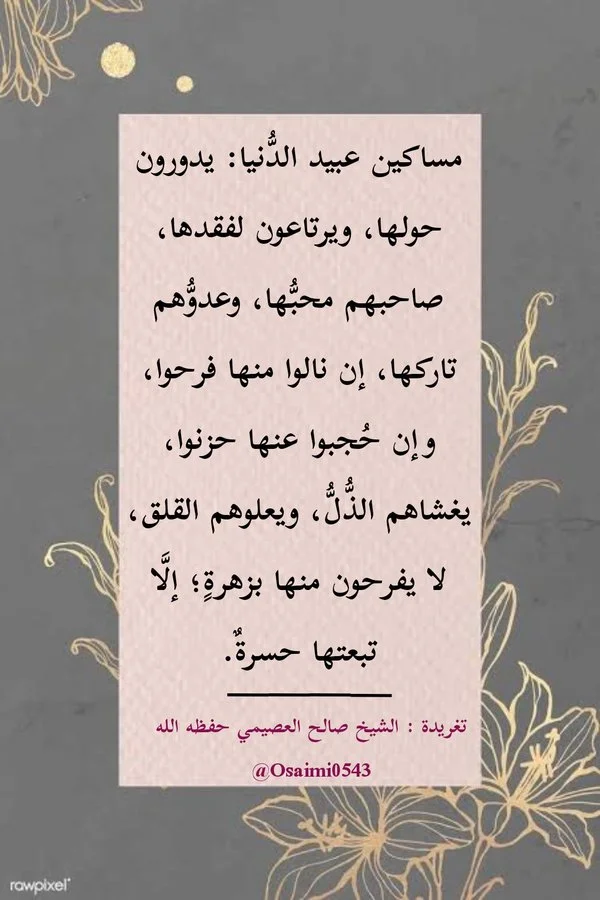 مساكين عبيد الدُّنيا: يدورون
حولها، ويرتاعون لفقدها،
صاحبهم محبُّها، وعدوُّهم
تاركها، إن نالوا منها فرحوا،
وإن حُجبوا عنها حزنوا،
يغشاهم الذُّلُّ، ويعلوهم القلق،
لا يفرحون منها بزهرةٍ؛ إلَّا
تبعتها حسرةٌ.
تغريدة : الشيخ صالح العصيمي حفظه الله
@Osaimi0543
rawpixel